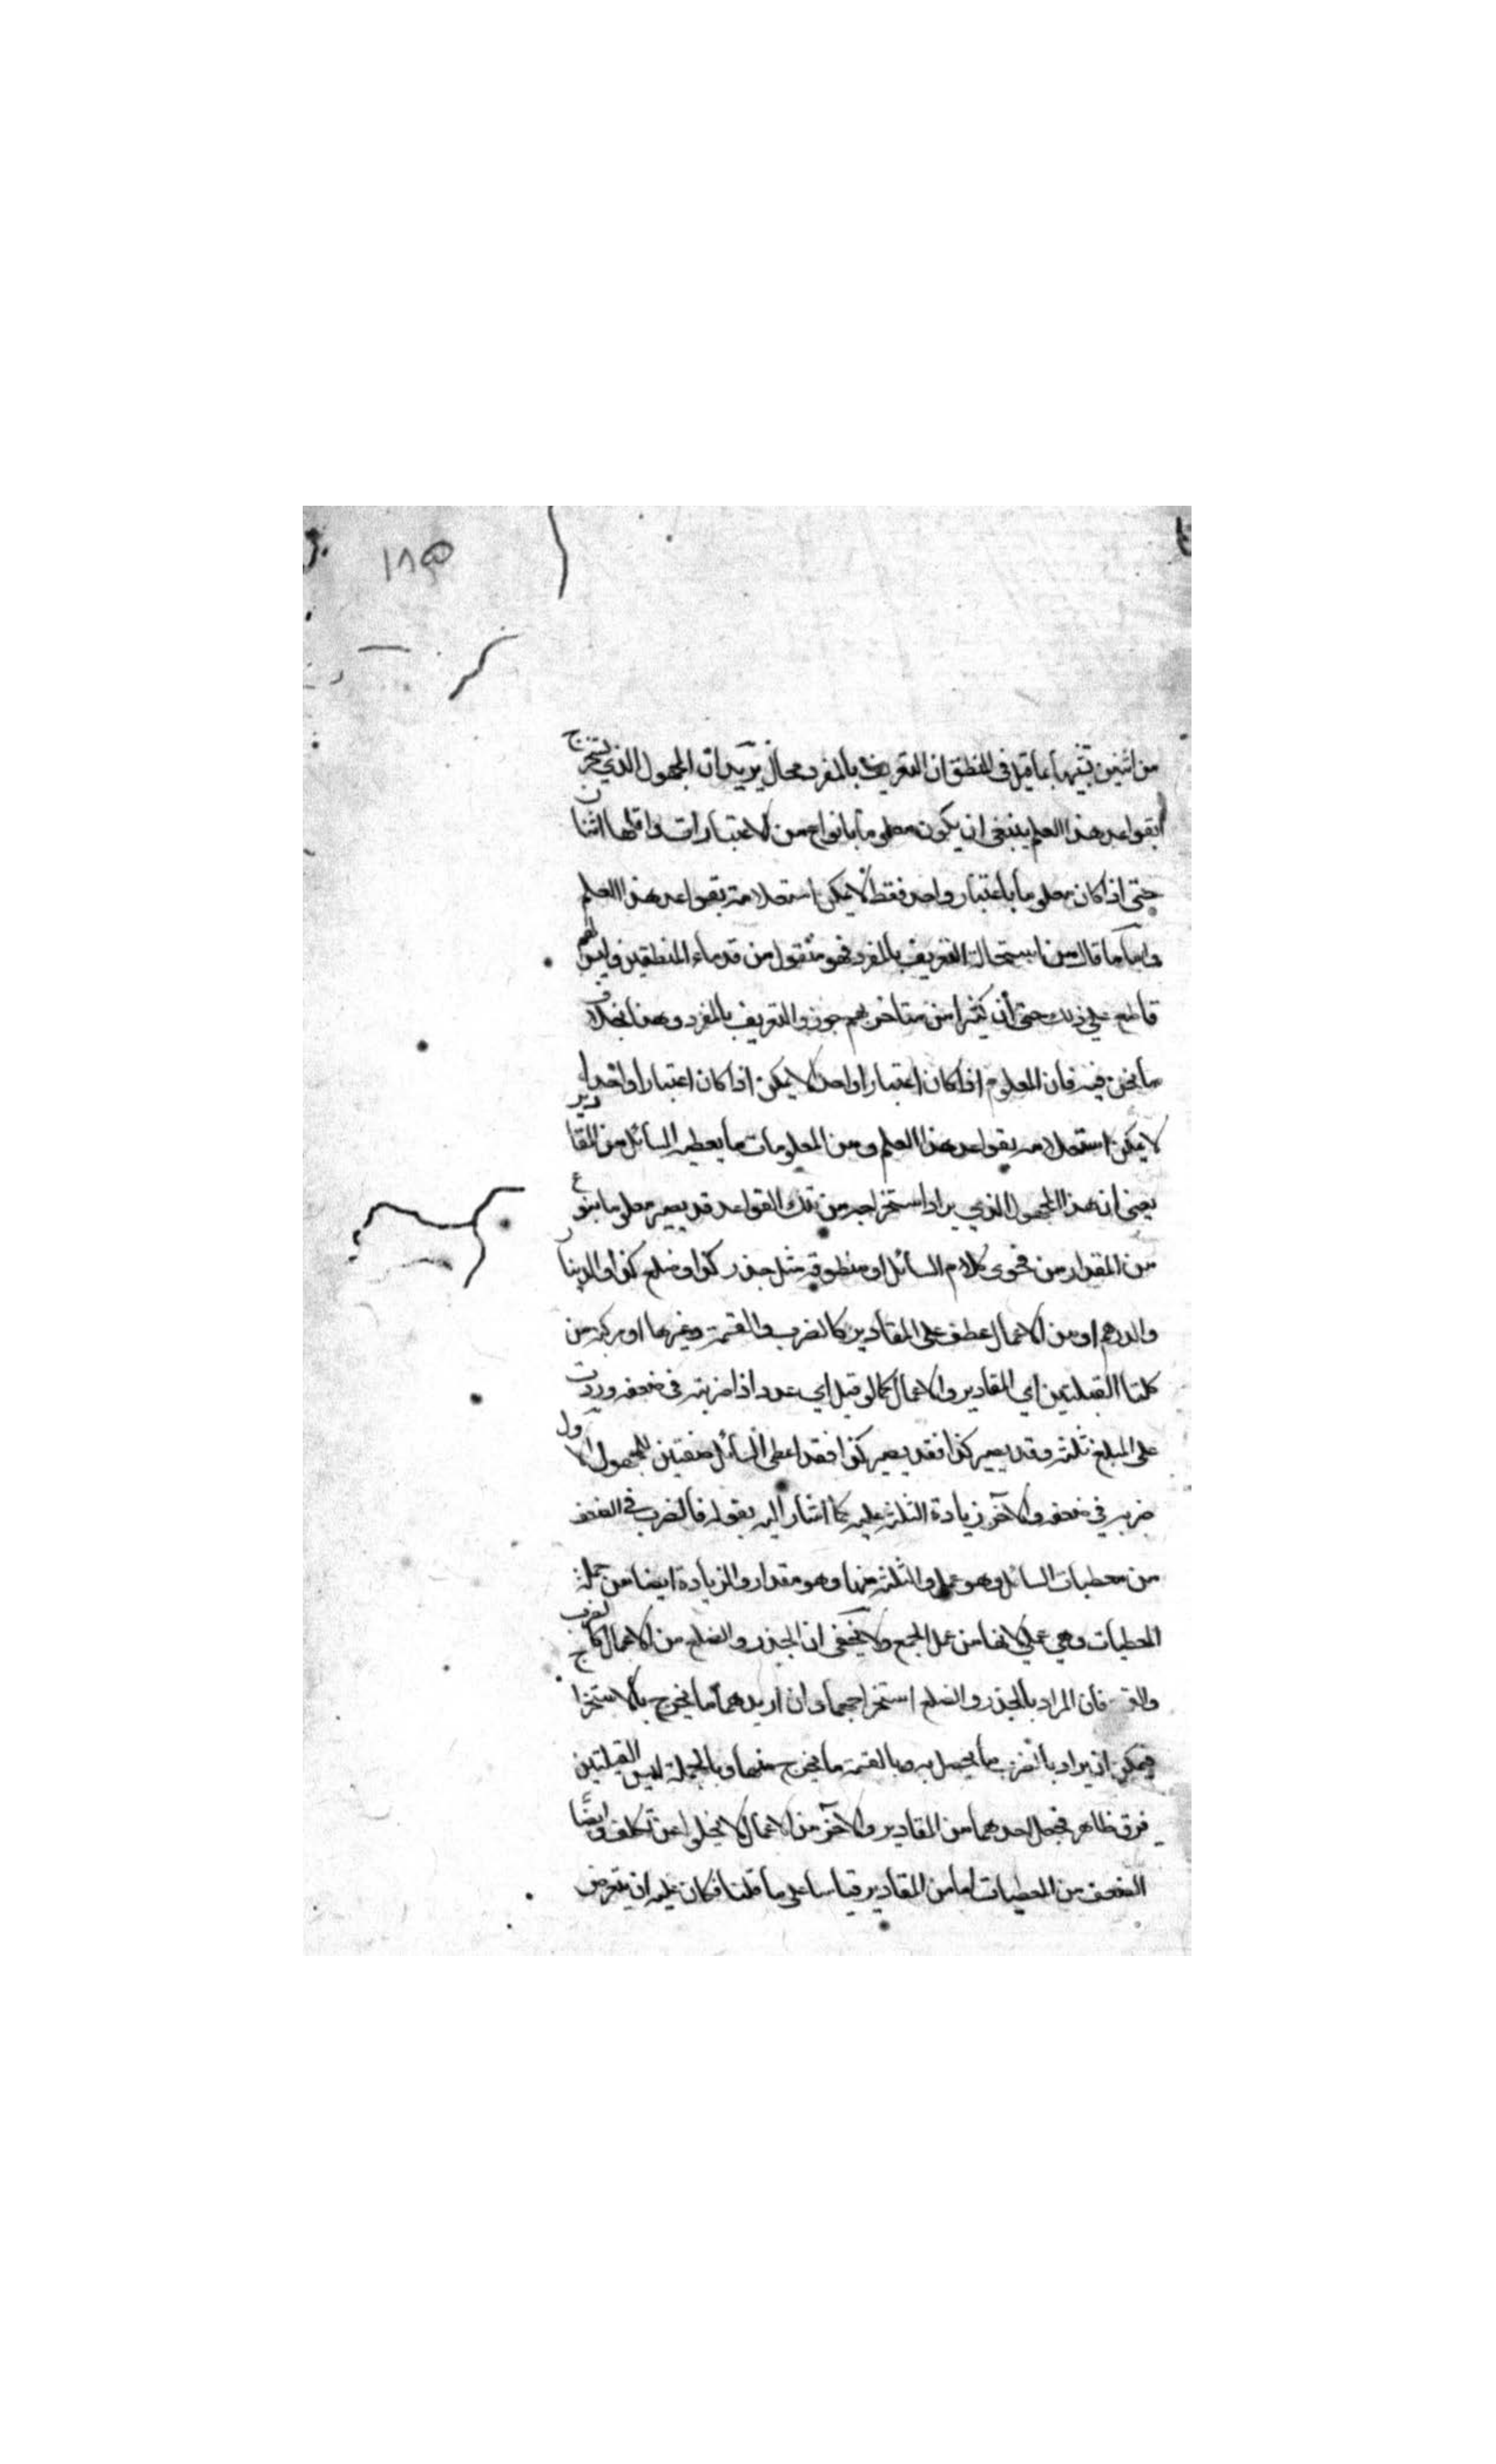 ١٨٥
من اثنين تنبيها بما قيل في المنطق ان التعريف بالمفرد محال يريد ان المجهول الذي يستخرج
بقواعد هذا العلم ينبغي ان يكون معلوما بانواع من الاعتبارات واقلها اثنان
حتى اذا كان معلوما باعتبار واحد فقط لا يمكن استعلامه بقواعد هذا العلم
واما ما قال من استحالة التعريف بالمفرد فهو منقول من قدماء المنطقين وليس لهم
قاطع على ذلك حتى أن كثيرا من متاخريهم جوزوا التعريف بالمفرد وهذا بخلاف
ما نحن فيه فان المعلوم اذا كان اعتبارا واحدا لا يمكن اذا كان اعتبارا واحدا
لا يمكن استعلامه بقواعد هذا العلم ومن المعلومات ما يعطيه السائل من المقادير
يعنى ان هذا المجهول الذي يراد استخراجه من تلك القواعد قد يصير معلوما بنوع
من المقدار من فحوى كلام السائل او منطوقه مثل جذر كذا و ضلع كذا او الدينار
والدرهم او من الاعمال عطف على المقادير كالضرب والقسمة وغيرها او مركبة من
كلتا القبيلتين اي المقادير والاعمال كما لو قيل اي عدد اذا ضربته في ضعفه وزدت
على المبلغ ثلثة وقد يصير كذا فقد يصير كذا فقد اعطى السائل صفتين للمجهول الاول
ضربه في ضعفه والآخر زيادة الثلثة عليه كما اشار اليه بقوله فالضرب في الضعف
من معطيات السائل وهو عمل والثلثة منها وهو مقدار والزيادة ايضا من جملة
المعطيات وهي عمل لانها من عمل الجمع ولا يخفى ان الجذر والضلع من الاعمال كالضرب
فان المراد بالجذر والضلع استخراجهما وان اريد بهما ما يخرج بالاستخراج
فيمكن ان يراد بالضرب ما يحصل به وبالقسمة ما يخرج منها وبالجملة ليس القبيلتين
فرق ظاهر فجعل احدهما من المقادير والآخر من الاعمال لا يخلوا عن تكلف وايضًا
الضعف من المعطيات اما من المقادير قياسا على ما قلنا فكان عليه ان يتعرض